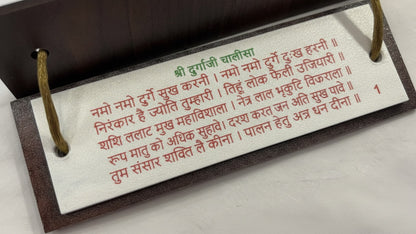 श्री दुर्गाजी चालीसा
नमो नमो दुर्गे सुख करनी । नमो नमो दुर्गे दुःख हरनी ॥
निरंकार है ज्योति तुम्हारी । तिहूं लोक फैली उजियारी ॥
शशि ललाट मुख महाविशाला । नेत्र लाल भृकुटि विकराला ॥
रूप मातु को अधिक सुहावे । दरश करत जन अति सुख पावे ॥
तुम संसार शक्ति लै कीना । पालन हेतु अन्न धन दीना ॥ 1